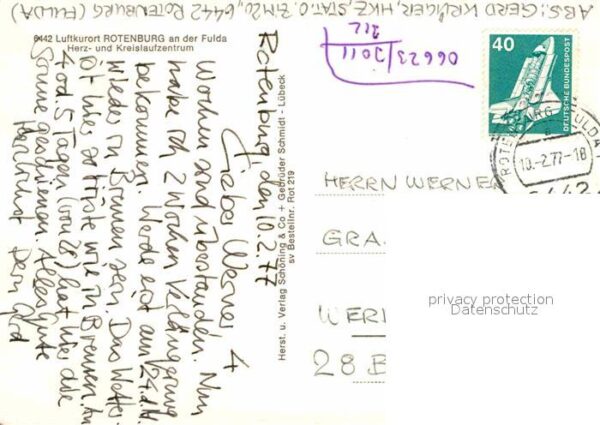 ABS: GERD KRÜGER, HKZ, STAT. O, ZIM 20, 6442 ROTENBURG (FULDA)
6442 Luftkurort ROTENBURG an der Fulda
Herz- und Kreislaufzentrum
06623/2011
212
40
DEUTSCHE BUNDESPOST
10.-2.77-18
Rotenburg, den 10.2.77
Lieber Werner, 4
Wochen sind überstanden. Nun
habe ich 2 Wochen Verlängerung
bekommen. Werde erst am 24.2.
wieder in Bremen sein. Das Wetter
ist hier so triste wie in Bremen. An
4 od. 5 Tagen (von 28) hat hier die
Sonne geschienen. Alles Gute
herzlichst Dein Gerd
Herst. u. Verlag Schöning & Co + Gebrüder Schmidt - Lübeck
sv Bestellnr. Rot. 219
HERRN WERNER
GRA
WER
28 B
privacy protection
Datenschutz